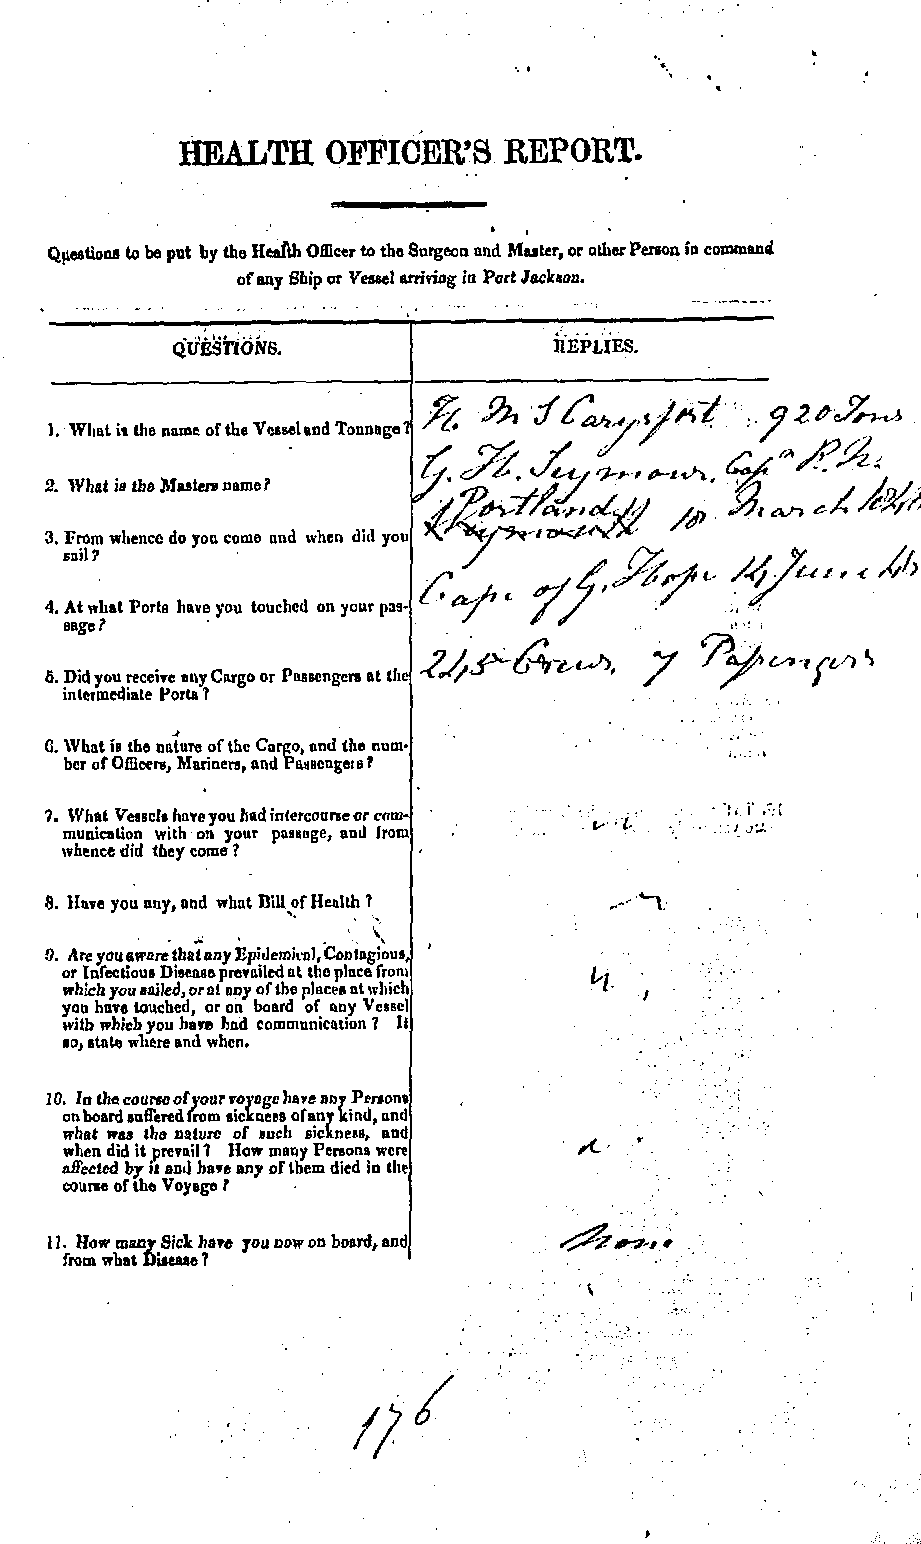 HEALTH OFFICER'S REPORT.
Questions to be put by the Health Officer to the Surgeon and Master, or other Person in command
of any Ship or Vessel arriving in Port Jackson.
QUESTIONS. REPLIES.
1. What is the name of the Vessel and Tonnage? H. M S Carysfort 920 Tons
2. What is the Masters name? G. H. Seymour. Capn R. N.
3. From whence do you come and when did you Portland 10 March
sail?
4. At what Ports have you touched on your pas- Cape of G. Hope 14 June
sage?
5. Did you receive any Cargo or Passengers at the 245 Crew. 7 Passengers
intermediate Ports?
6. What is the nature of the Cargo, and the num-
ber of Officers, Mariners, and Passengers?
7. What Vessels have you had intercourse or com-
munication with on your passage, and from
whence did they come?
8. Have you any, and what Bill of Health?
9. Are you aware that any Epidemical, Contagious,
or Infectious Disease prevailed at the place from
which you sailed, or at any of the places at which
you have touched, or on board of any Vessel
with which you have had communication? If
so, state where and when.
10. In the course of your voyage have any Persons
on board suffered from sickness of any kind, and
what was the nature of such sickness, and
when did it prevail? How many Persons were
affected by it and have any of them died in the
course of the Voyage?
11. How many Sick have you now on board, and None
from what Disease?
176